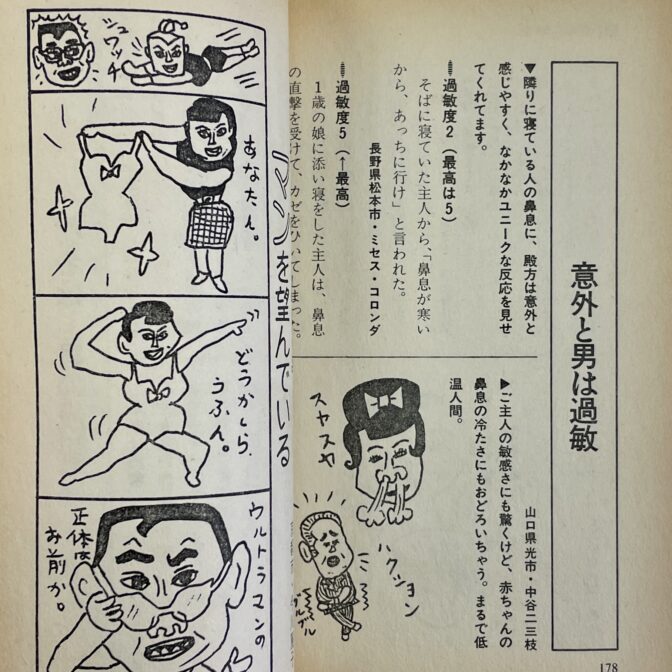 意外と男は過敏
▼隣りに寝ている人の鼻息に、殿方は意外と
感じやすく、なかなかユニークな反応を見せ
てくれてます。
過敏度2(最高は5)
そばに寝ていた主人から、「鼻息が寒い
から、あっちに行け」と言われた。
長野県松本市・ミセス・コロンダ
過敏度5(↑最高)
1歳の娘に添い寝をした主人は、鼻息
の直撃を受けて、カゼをひいてしまった。
山口県光市・中谷二三枝
▶ご主人の敏感さにも驚くけど、赤ちゃんの
鼻息の冷たさにもおどろいちゃう。まるで低
温人間。
スヤスヤ
ハクション
ブルブル
178
マンを望んでいる
シュワッチ
あなたん。
どうかしら
うふん。
ウルトラマンの
正体は
お前か。